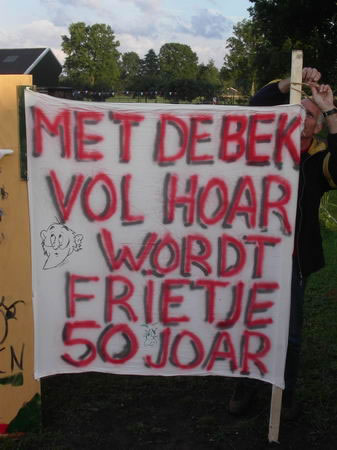 MET DE BEK
VOL HOAR
WORDT
FRIETJE
50 JOAR